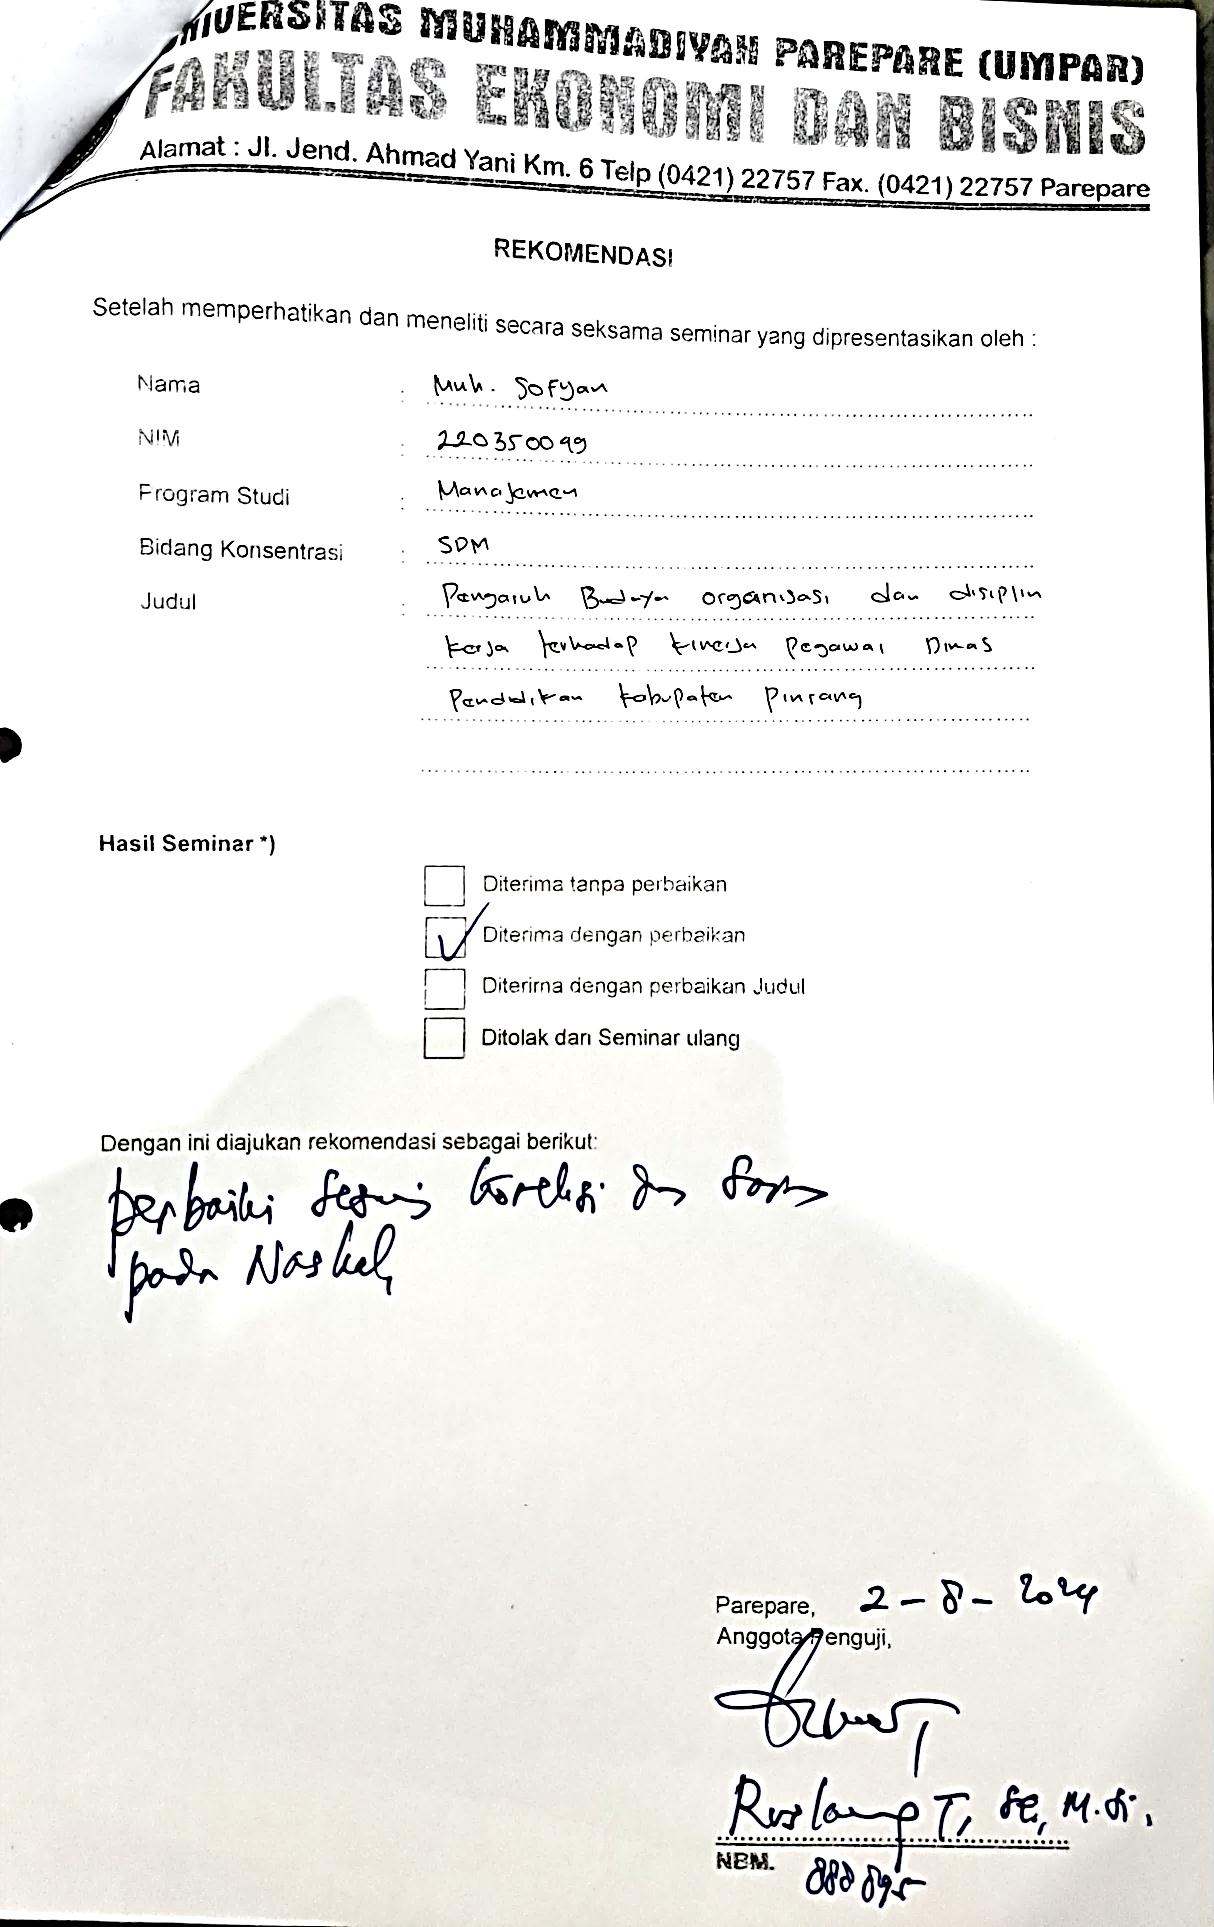 UNIVERSITAS MUHAMMADIYAH PAREPARE (UMPAR)
FAKULTAS EKONOMI DAN BISNIS
Alamat : Jl. Jend. Ahmad Yani Km. 6 Telp (0421) 22757 Fax. (0421) 22757 Parepare
REKOMENDASI
Setelah memperhatikan dan meneliti secara seksama seminar yang dipresentasikan oleh :
Nama : Muh. Sofyan
NIM : 220350099
Program Studi : Manajemen
Bidang Konsentrasi : SDM
Judul : Pengaruh Budaya organisasi dan disiplin
kerja terhadap kinerja Pegawai Dinas
Pendidikan kabupaten Pinrang
Hasil Seminar *)
Diterima tanpa perbaikan
Diterima dengan perbaikan
Diterima dengan perbaikan Judul
Ditolak dan Seminar ulang
Dengan ini diajukan rekomendasi sebagai berikut:
perbaiki sesuai koreksi dan saran
pada Naskah
Parepare, 2-8-2024
Anggota Penguji,
Ruslang T, SE, M.Si.
NBM. 888895